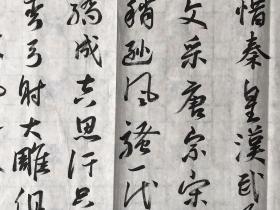 惜秦皇漢武
文采唐宗宋
稍逊风骚一代
骄成吉思汗只
弯弓射大雕俱